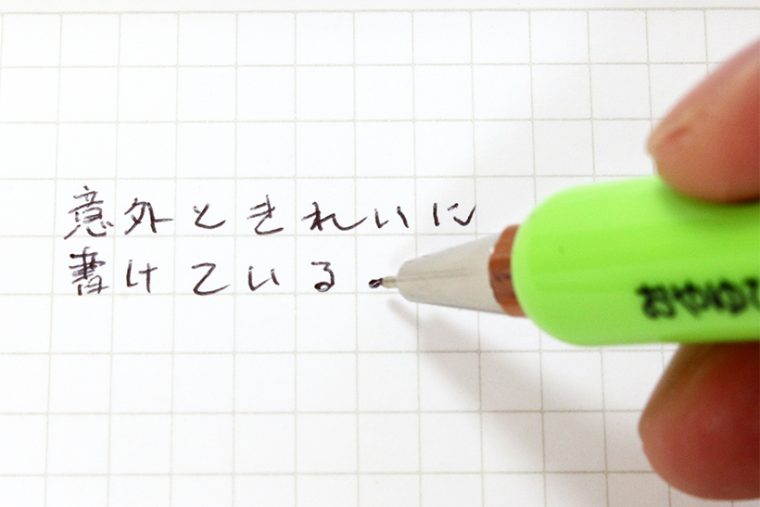 意外ときれいに
書けている
おやゆび